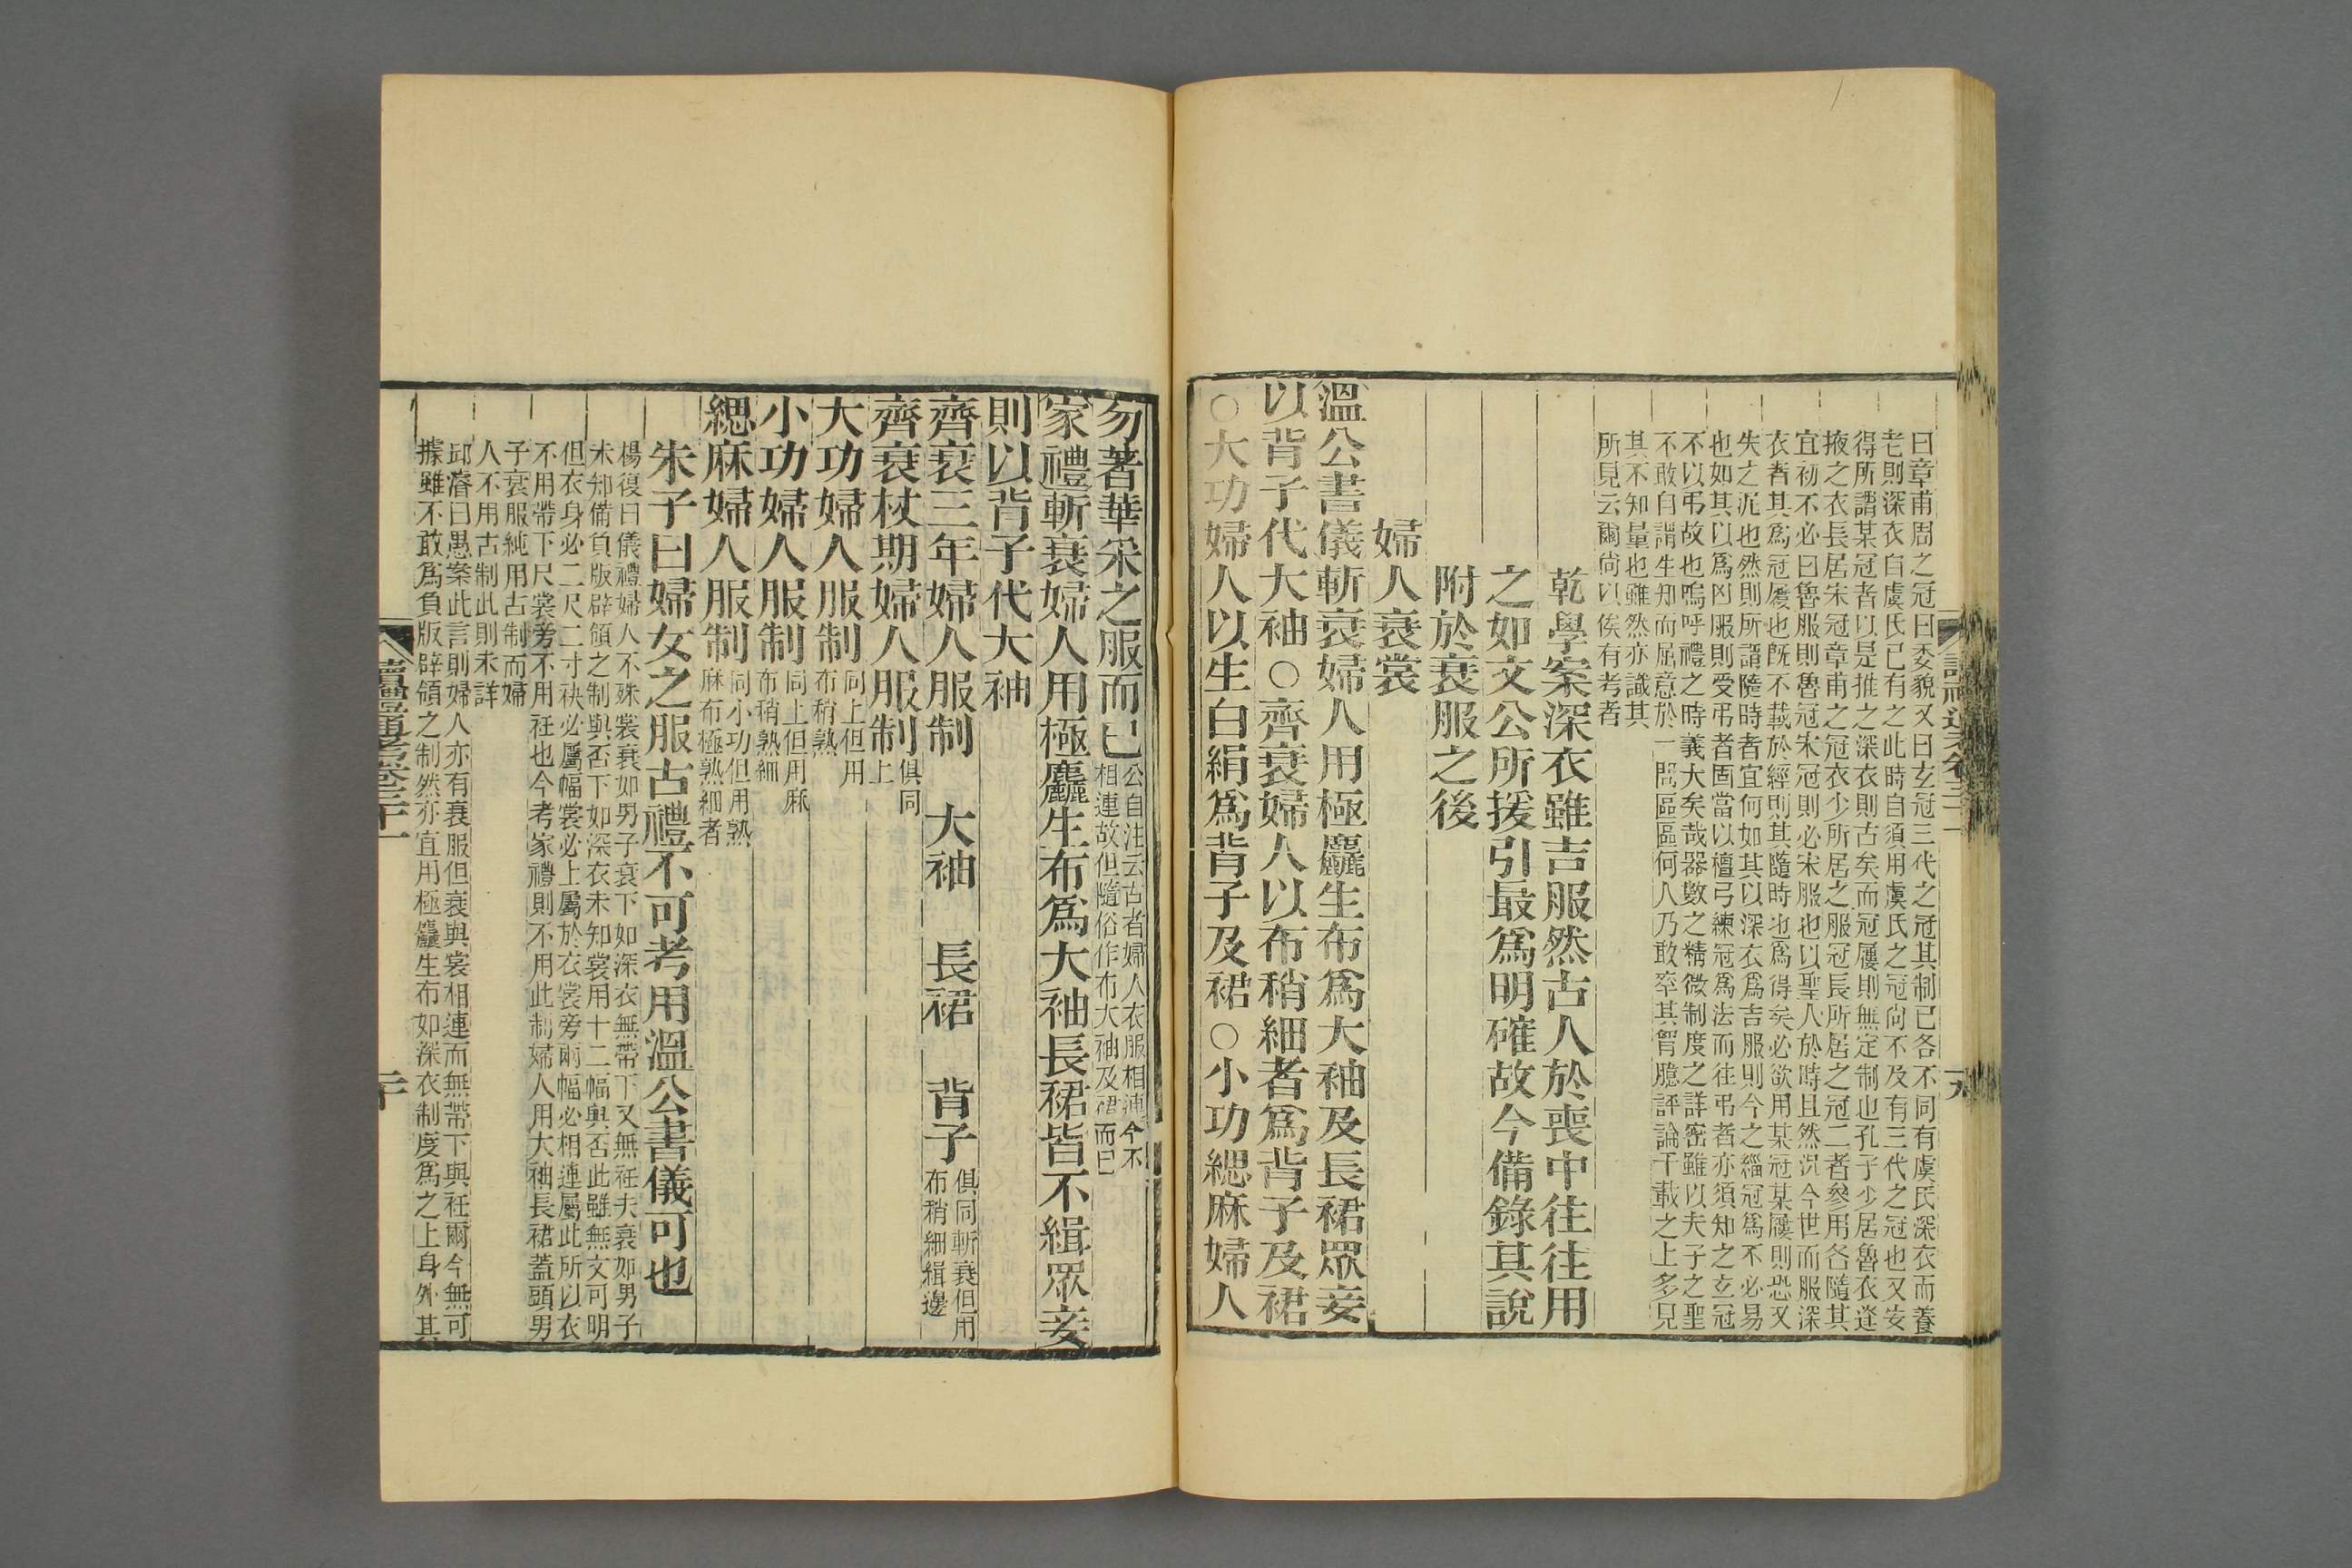 曰章甫周之冠曰委貌又曰玄冠三代之冠其制已各不同有虞氏深衣而養
老則深衣自虞氏已有之此時自須用虞氏之冠尙不及有三代之冠也又安
得所謂某冠者以是推之深衣則古矣而冠屨則無定制也孔子少居魯衣逢
掖之衣長居宋冠章甫之冠衣少所居之服冠長所居之冠二者參用各隨其
宜初不必曰魯服則魯冠宋冠則必宋服也以聖人於時且然況今世而服深
衣者其爲冠屨也旣不載於經則其隨時也爲得矣必欲用某冠某屨則恐又
失之泥也然則所謂隨時者宜何如其以深衣爲吉服則今之緇冠爲不必易
也如其以爲凶服則受弔者固當以檀弓練冠爲法而往弔者亦須知之玄冠
不以弔故也嗚呼禮之時義大矣哉器數之精微制度之詳密雖以夫子之聖
不敢自謂生知而屈意於一問區區何人乃敢率其胷臆評論千載之上多見
其不知量也雖然亦識其
所見云爾尙以俟有考者
乾學案深衣雖吉服然古人於喪中往往用
之如文公所援引最爲明確故今備錄其說
附於衰服之後
婦人衰裳
溫公書儀斬衰婦人用極麤生布爲大袖及長裙眾妾
以背子代大袖○齊衰婦人以布稍細者爲背子及裙
○大功婦人以生白絹爲背子及裙○小功緦麻婦人
勿著華采之服而已公自注云古者婦人衣服相連今不
相連故但隨俗作布大袖及裙而已
家禮斬衰婦人用極麤生布爲大袖長裙皆不緝眾妾
則以背子代大袖
齊衰三年婦人服制 大袖 長裙 背子俱同斬衰但用
布稍細緝邊
齊衰杖期婦人服制俱同
上
大功婦人服制同上但用
布稍熟
小功婦人服制同上但用麻
布稍熟細
緦麻婦人服制同小功但用熟
麻布極熟細者
朱子曰婦女之服古禮不可考用溫公書儀可也
楊復曰儀禮婦人不殊裳衰如男子衰下如深衣無帶下又無衽夫衰如男子
未知備負版辟領之制與否下如深衣未知裳用十二幅與否此雖無文可明
但衣身必二尺二寸袂必屬幅裳必上屬於衣裳旁兩幅必相連屬此所以衣
不用帶下尺裳旁不用衽也今考家禮則不用此制婦人用大袖長裙蓋頭男
子衰服純用古制而婦
人不用古制此則未詳
邱濬曰愚案此言則婦人亦有衰服但衰與裳相連而無帶下與衽爾今無可
據雖不敢爲負版辟領之制然亦宜用極麤生布如深衣制度爲之上身外其
讀禮通考卷三十一
二十